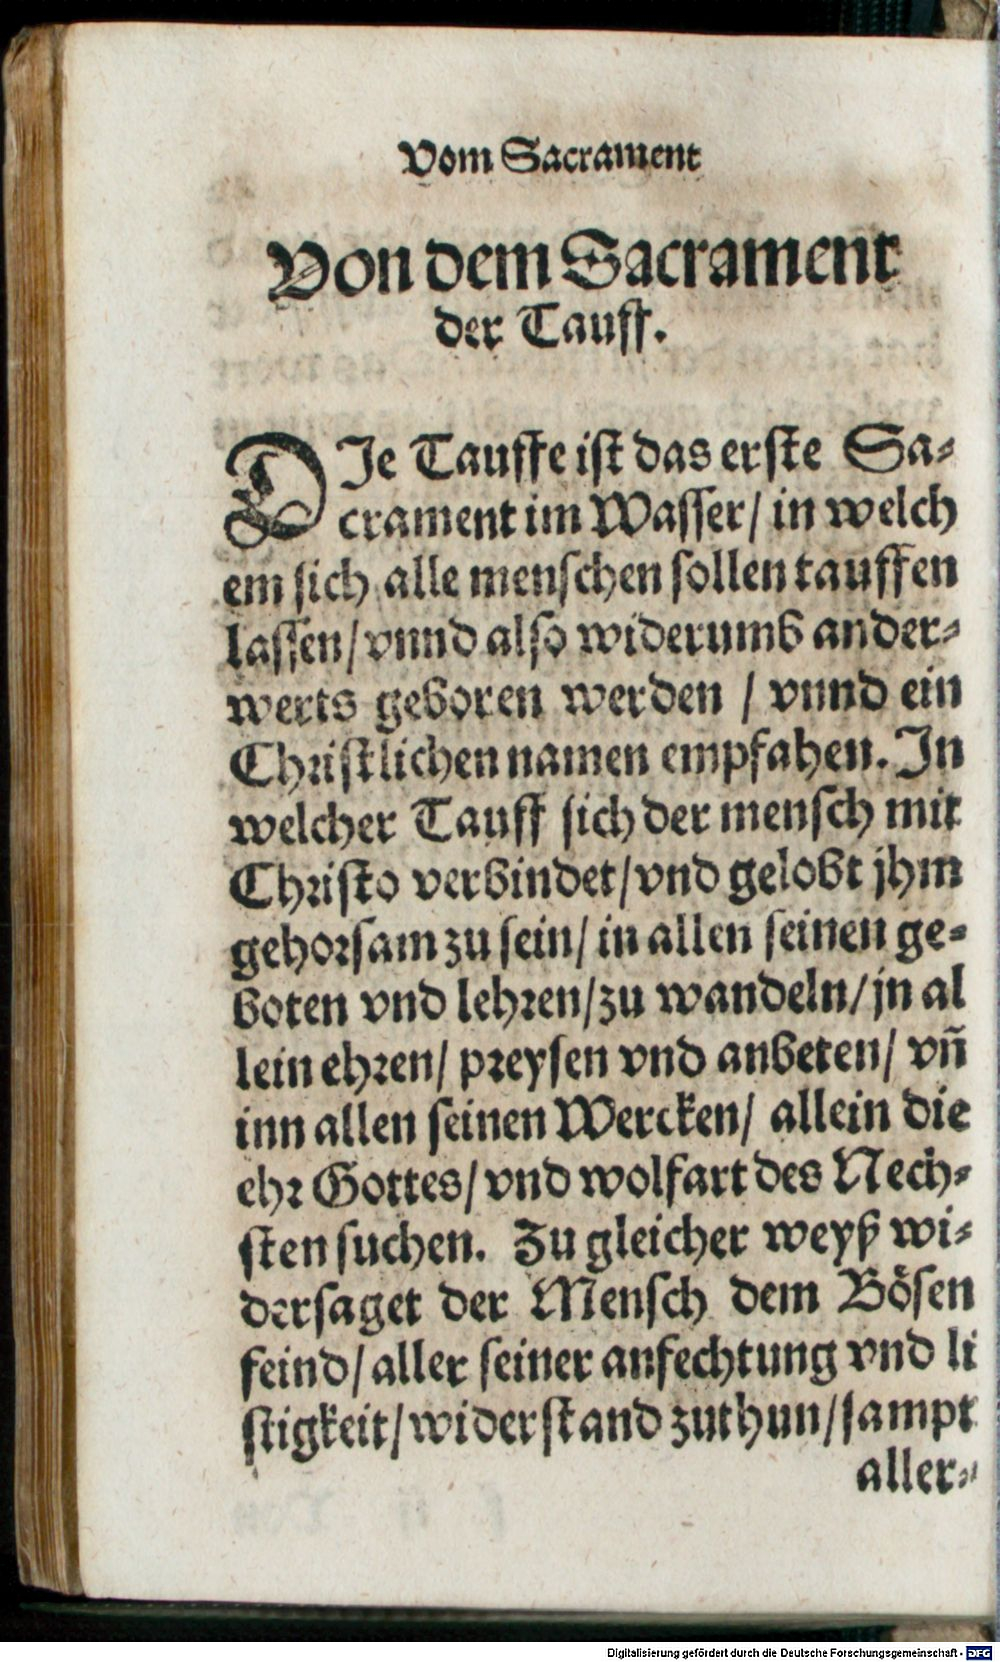 Vom Sacrament
Von dem Sacrament
der Tauff.
DIe Tauffe ist das erste Sa-
crament im Wasser/ in welch
em sich alle menschen sollen tauffen
lassen/ vnnd also widerumb ander-
werts geboren werden / vnnd ein
Christlichen namen empfahen. In
welcher Tauff sich der mensch mit
Christo verbindet/ vnd gelobt jhm
gehorsam zu sein/ in allen seinen ge-
boten vnd lehren/ zu wandeln/ jn al
lein ehren/ preysen vnd anbeten/ vñ
inn allen seinen Wercken/ allein die
ehr Gottes/ vnd wolfart des Nech-
sten suchen. Zu gleicher weyß wi-
dersaget der Mensch dem Bösen
feind/ aller seiner anfechtung vnd li
stigkeit/ widerstand zuthun/ sampt
aller-
Digitalisierung gefördert durch die Deutsche Forschungsgemeinschaft - DFG